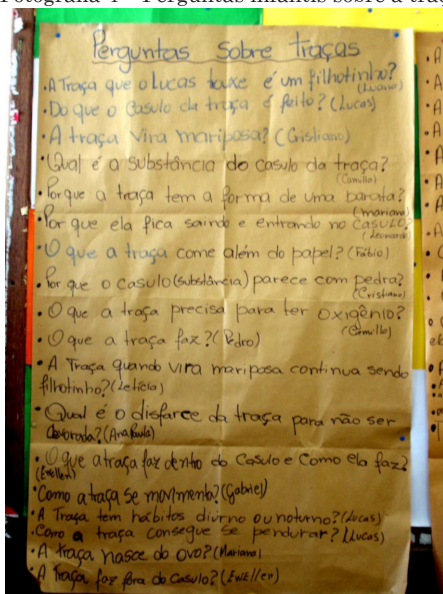 Fotografia 4 – Perguntas infantis sobre a tra
Perguntas Sobre traças
•A Traça que o Lucas touxe é um filhotinho?
(Luana)
•Do que o Casulo da traça é feito? (Lucas)
•A traça vira mariposa? (Cristiano)
•Qual é a substância do casulo da traça?
(Camilla)
•Por que a traça tem a forma de uma barata?
(mariana)
•Por que ela fica saindo e entrando no CASULO?
(Leonardo)
•O que a traça come além do papel? (Fábio)
•Por que o casulo (substância) parece com pedra?
(Cristiano)
•O que a traça precisa para ter oxigênio?
(Camilla)
•O que a traça faz? (Pedro)
•A Traça quando vira mariposa continua sendo
filhotinho? (Letícia)
•Qual é o disfarce da traça para não ser
devorada? (Ana Paula)
•O que a traça faz dentro do Casulo e Como ela faz?
(Ewellen)
•Como a traça se movimenta? (Gabriel)
•A Traça tem hábitos diurno ou noturno? (Lucas)
•Como a traça consegue se pendurar? (Lucas)
•A traça nasce do ovo? (Mariana)
•A traça faz fora do Casulo? (Ewellen)